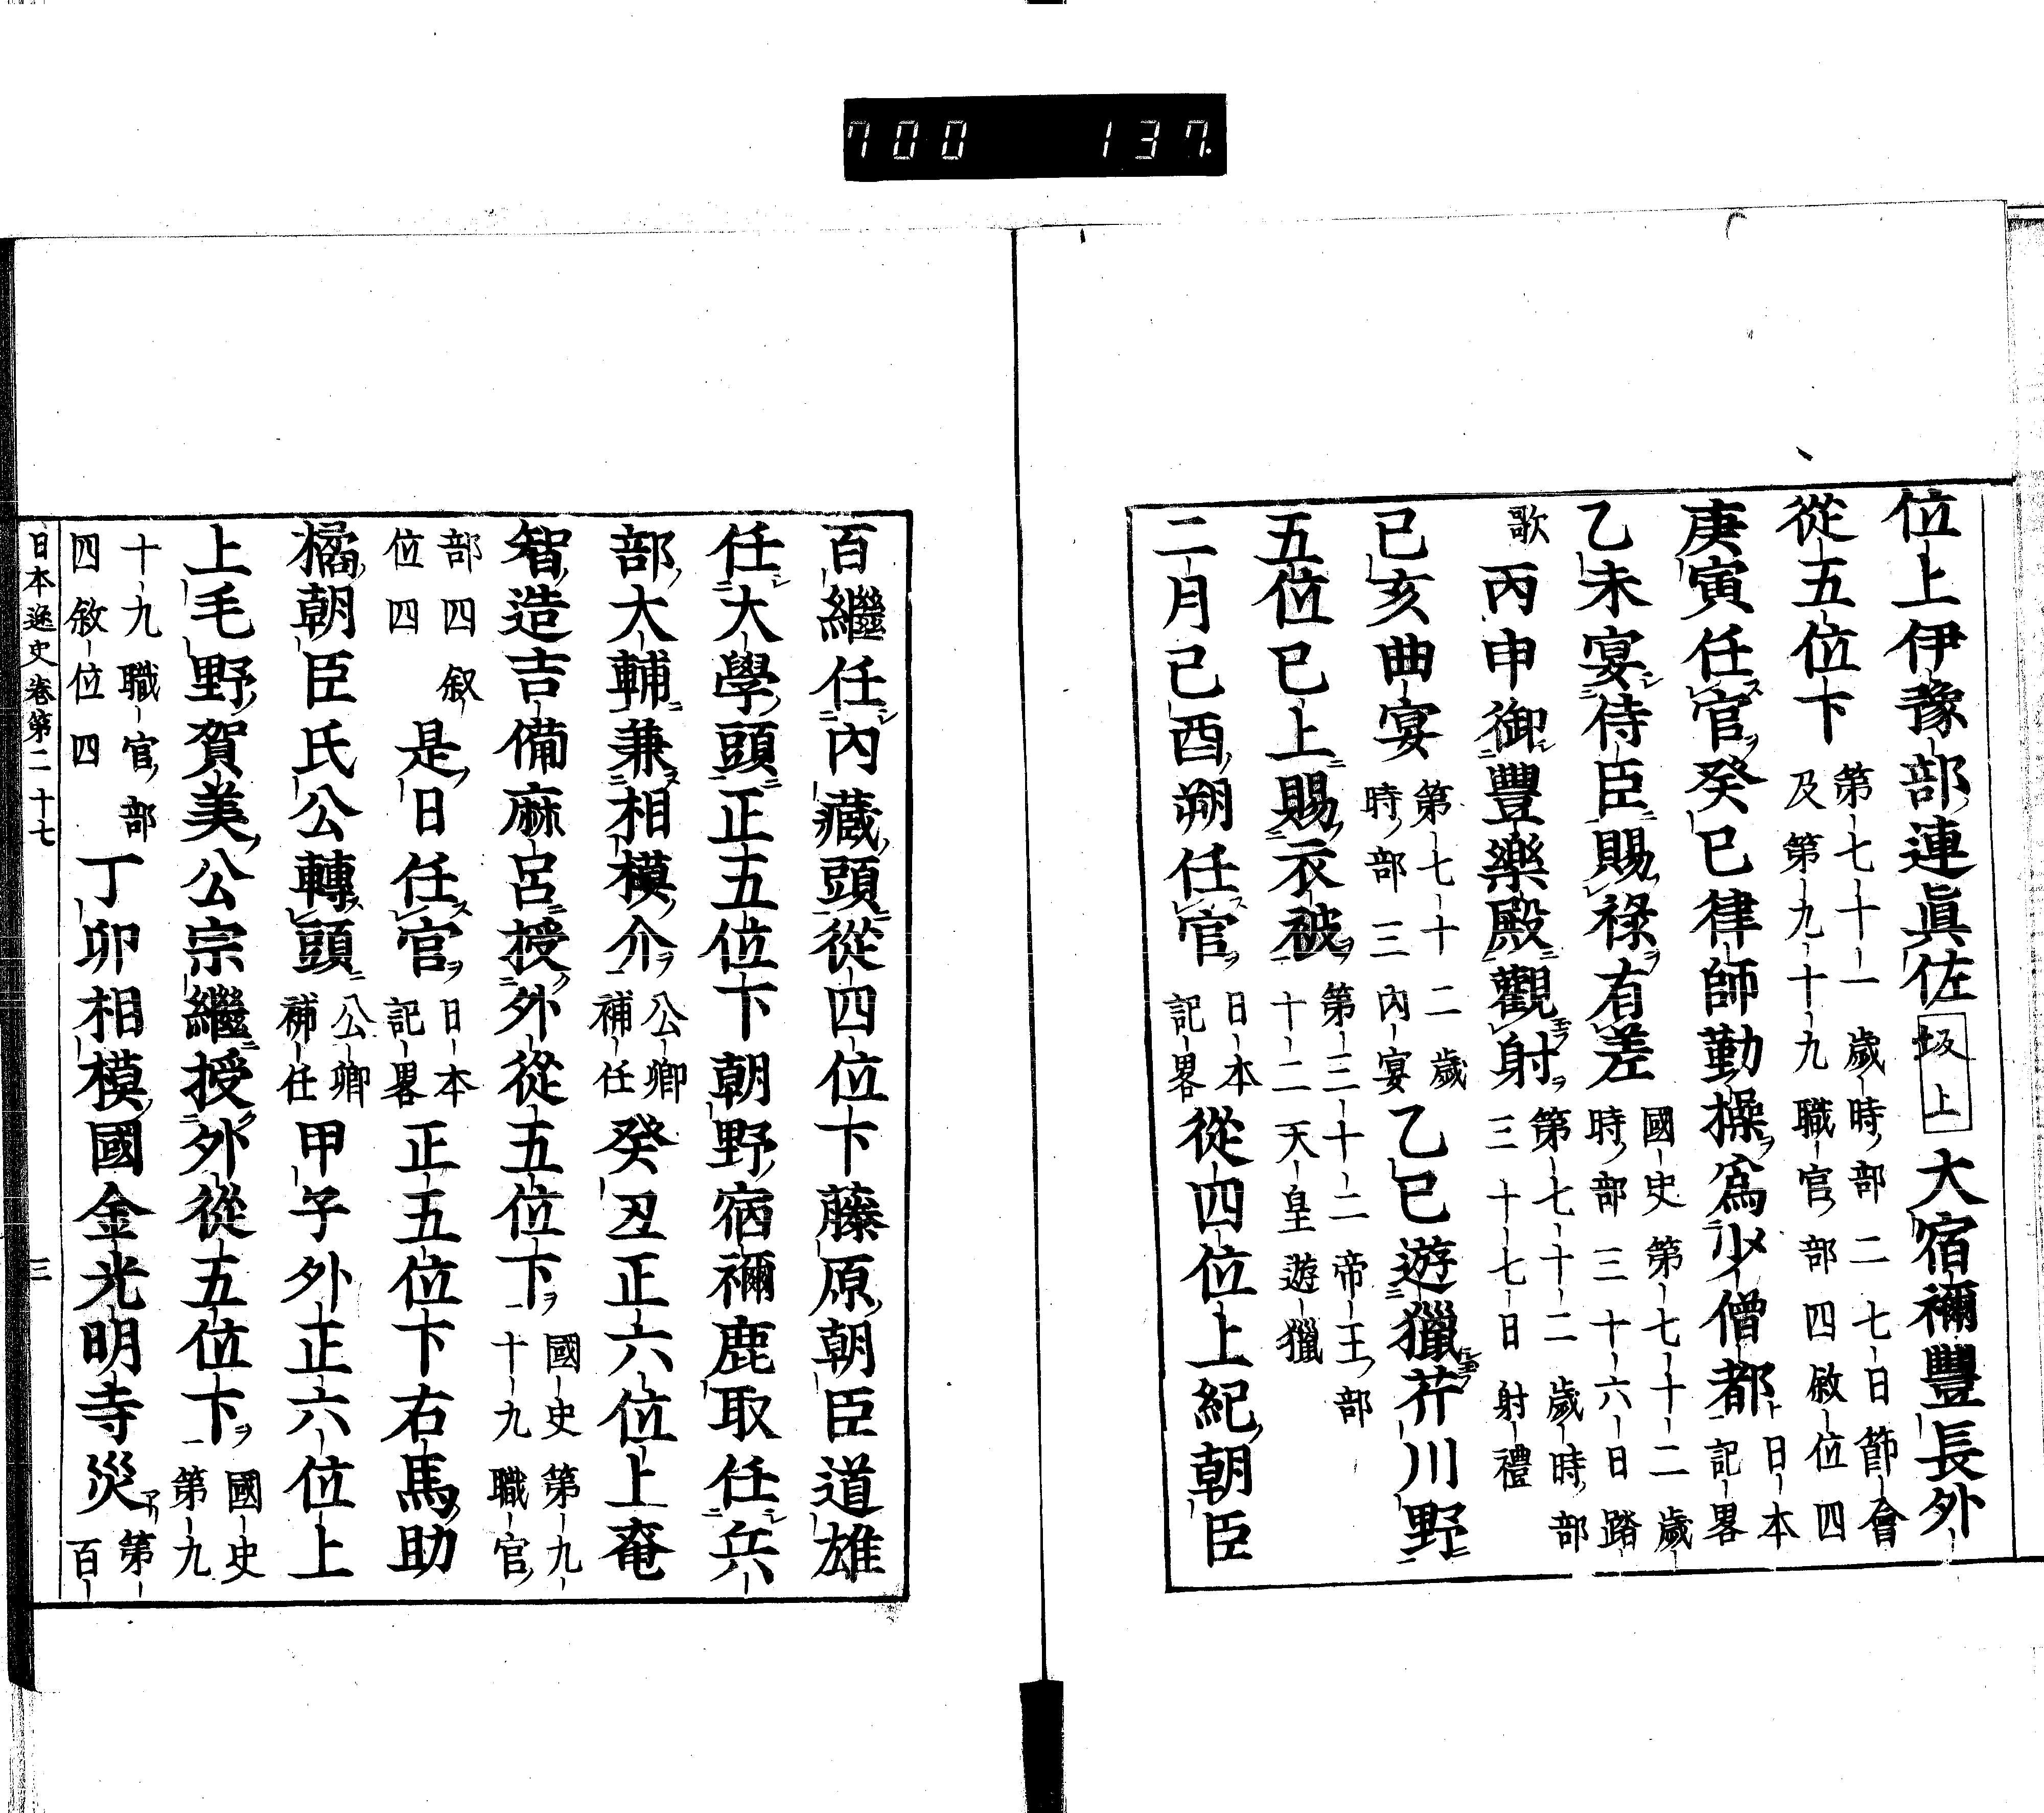 700 137.
位上伊豫部連眞佐坂上大宿禰豐長外
從五位下第七十一歲時部二七日節會及第九十九職官部四敘位四
庚寅任官癸巳律師勤操爲少僧都日本記畧
乙未宴侍臣賜祿有差國史第七十二歲時部三十六日踏
歌丙申御豐樂殿觀射第七十二歲時部三十七日射禮
己亥曲宴第七十二歲時部三內宴乙巳遊獵芥川野
五位已上賜衣被第三十二帝王部十二天皇遊獵
二月己酉朔任官日本記畧從四位上紀朝臣
百繼任內藏頭從四位下藤原朝臣道雄
任大學頭正五位下朝野宿禰鹿取任兵
部大輔兼相模介公卿補任癸丑正六位上奄
智造吉備麻呂授外從五位下國史第九十九職官
部四叙位四是日任官日本記畧正五位下右馬助
橘朝臣氏公轉頭公卿補任甲子外正六位上
上毛野賀美公宗繼授外從五位下國史第九
十九職官部四敘位四丁卯相模國金光明寺災第百
日本逸史卷第二十七 三